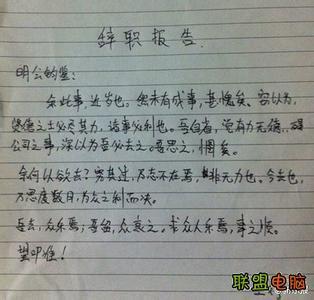 辞职报告
明公钧鉴:
余此事,近岁也。然未有成事,甚愧矣。容以为,
贤德之士必尽其力,诸事必利也。吾自省,觉有力无德,碍
公司之事,深以为吾必去之。吾思之,惘矣。
余何以欲去?窃其过,乃志不在焉,非无力也。今去也,
乃思度数月,为众之利而决。
吾去,众乐焉;吾留,众哀之。求众人乐焉,事之顺。
望叩准!
联盟电脑